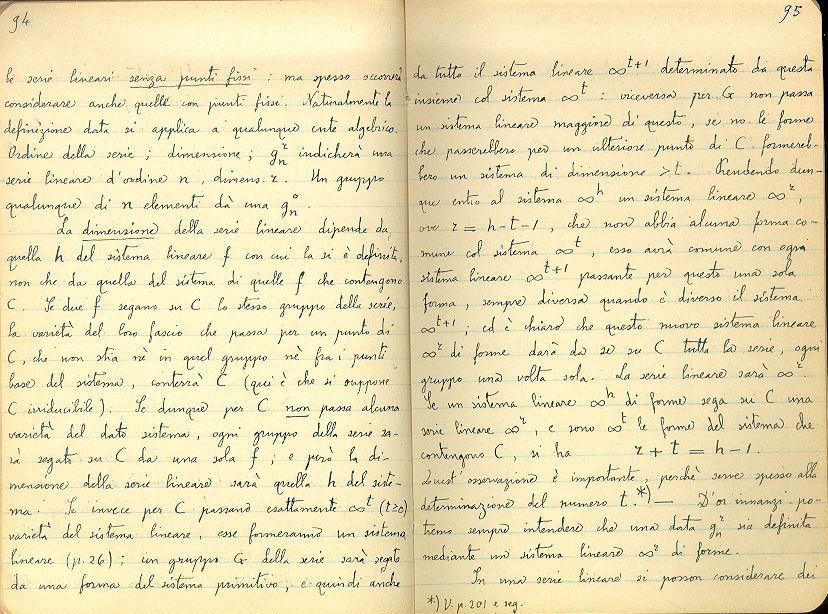 94
le serie lineari senza punti fissi: ma spesso occorrerà
considerare anche quelle con punti fissi. Naturalmente la
definizione data si applica a qualunque ente algebrico.
Ordine della serie; dimensione; gₙʳ indicherà una
serie lineare d'ordine n, dimens. r. Un gruppo
qualunque di n elementi dà una gₙ⁰.
La dimensione della serie lineare dipende da
quella h del sistema lineare f con cui la si è definita,
non che da quella del sistema di quelle f che contengono
C. Se due f segano su C lo stesso gruppo della serie,
la varietà del loro fascio che passa per un punto di
C, che non stia nè in quel gruppo nè fra i punti
base del sistema, conterrà C (qui è che si suppone
C irriducibile). Se dunque per C non passa alcuna
varietà del dato sistema, ogni gruppo della serie sa-
rà segato su C da una sola f; e però la di-
mensione della serie lineare sarà quella h del siste-
ma. Se invece per C passano esattamente ∞ᵗ (t≥0)
varietà del sistema lineare, esse formeranno un sistema
lineare (p. 26); un gruppo G della serie sarà segato
da una forma del sistema primitivo, e quindi anche
95
da tutto il sistema lineare ∞ᵗ⁺¹ determinato da questa
insieme col sistema ∞ᵗ: viceversa per G non passa
un sistema lineare maggiore di questo, se no le forme
che passerebbero per un ulteriore punto di C formereb-
bero un sistema di dimensione >t. Prendendo dun-
que entro al sistema ∞ʰ un sistema lineare ∞ʳ,
ove r = h-t-1, che non abbia alcuna forma co-
mune col sistema ∞ᵗ, esso avrà comune con ogni
sistema lineare ∞ᵗ⁺¹ passante per questo una sola
forma, sempre diversa quando è diverso il sistema
∞ᵗ⁺¹; ed è chiaro che questo nuovo sistema lineare
∞ʳ di forme darà da se su C tutta la serie, ogni
gruppo una volta sola. La serie lineare sarà ∞ʳ.
Se un sistema lineare ∞ʰ di forme sega su C una
serie lineare ∞ʳ, e sono ∞ᵗ le forme del sistema che
contengono C, si ha r + t = h - 1.
Quest'osservazione è importante, perchè serve spesso alla
determinazione del numero t.*) — D'or innanzi po-
tremo sempre intendere che una data gₙʳ sia definita
mediante un sistema lineare ∞ʳ di forme.
In una serie lineare si posson considerare dei
*) V. p. 201 e seg.